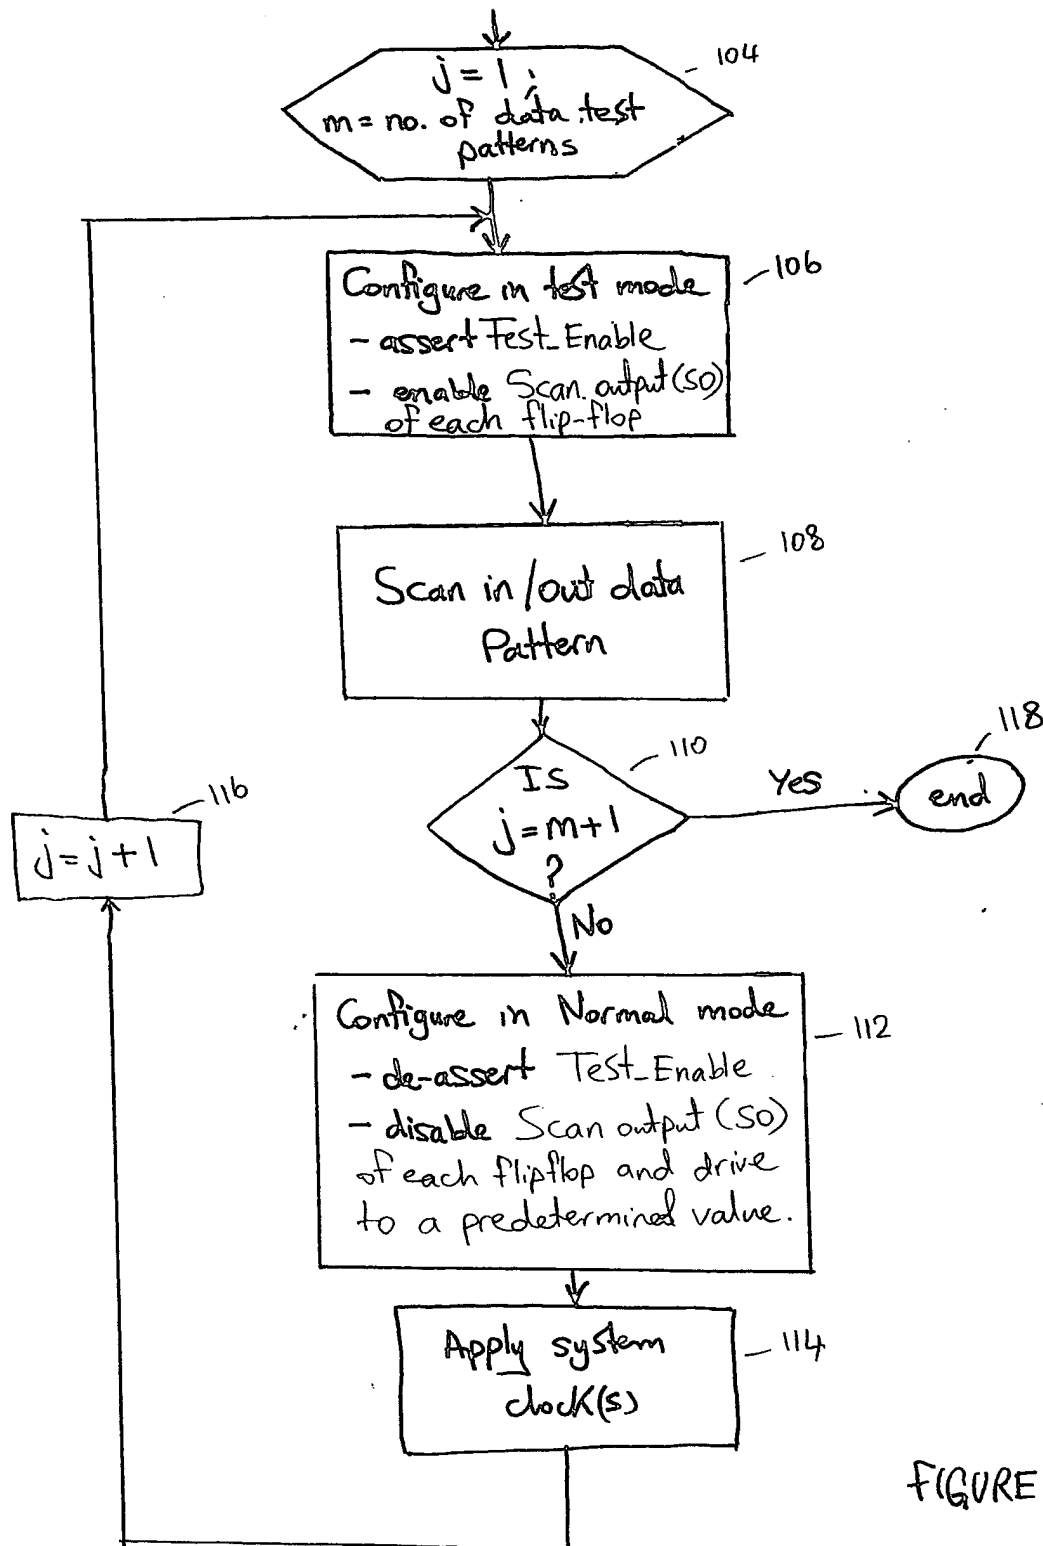 j = 1 ;
104
m = no. of data test
patterns
Configure in test mode
106
- assert Test_Enable
- enable Scan output (SO)
of each flip-flop
108
Scan in/out data
Pattern
110
Is
j = m+1
?
Yes
118
end
No
116
j = j + 1
Configure in Normal mode
112
- de-assert Test_Enable
- disable Scan output (SO)
of each flipflop and drive
to a predetermined value.
Apply system
clock(s)
114
FIGURE